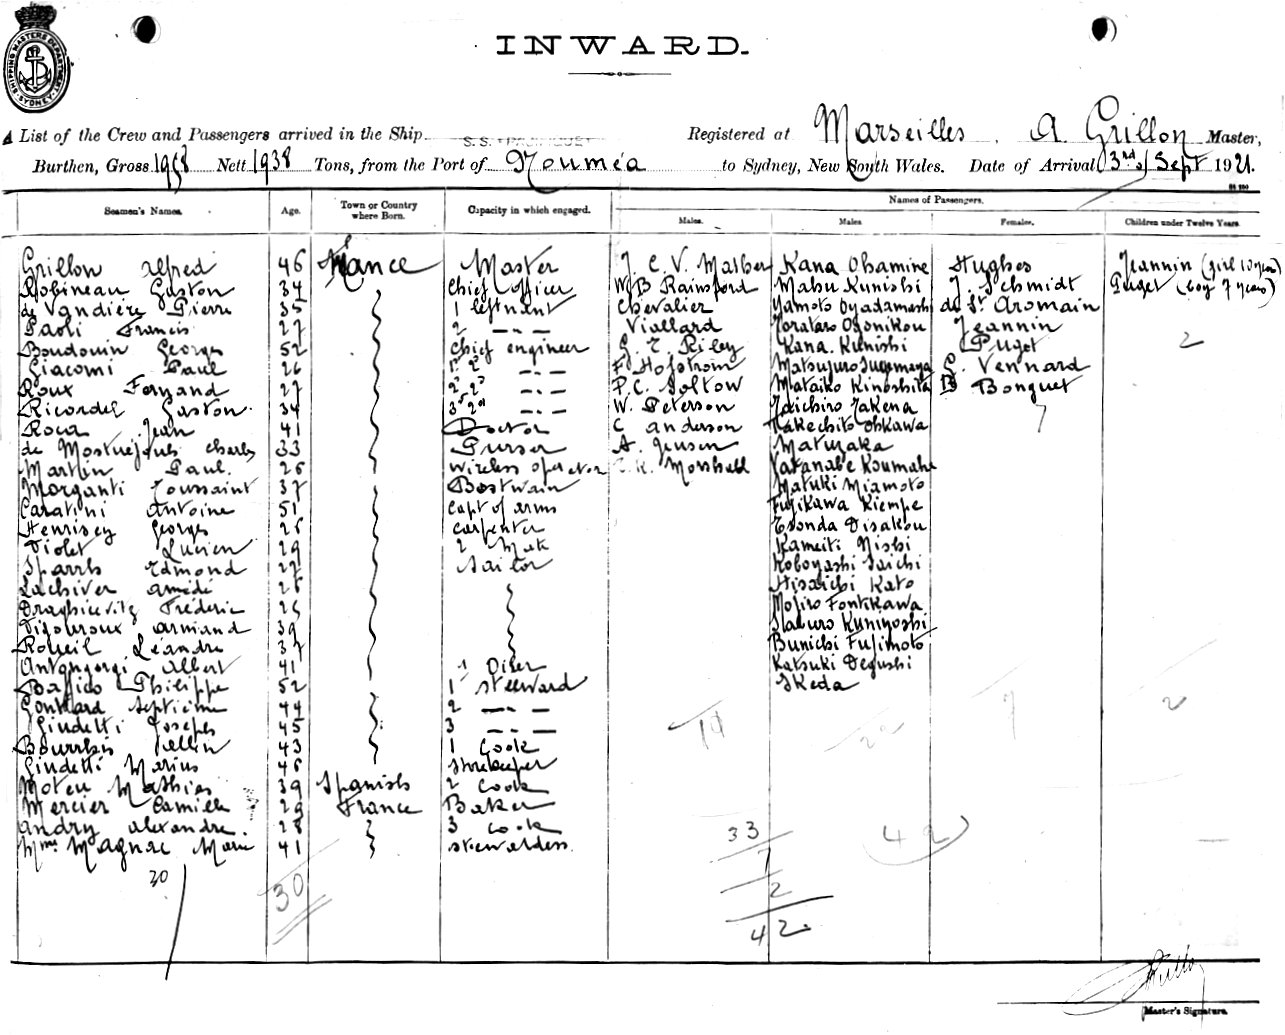 SHIPPING MASTERS DEPARTMENT SYDNEY
INWARD.
A List of the Crew and Passengers arrived in the Ship S.S. "PACIFIQUE" Registered at Marseilles, A. Grillon Master,
Burthen, Gross 1938 Nett 1938 Tons, from the Port of Nouméa to Sydney, New South Wales. Date of Arrival 3rd of Sept 1921.
Names of Passengers.
Seamen's Names. Age. Town or Country where Born. Capacity in which engaged. Males. Males. Females. Children under Twelve Years.
Grillon Alfred 46 France Master J. C. V. Mather Kana Ohamine Hughes Jeannin (girl 10 years)
Robineau Gaston 34 Chief Officer W B Rainsford Mabu Kunishi J. Schmidt Puget (boy 7 years)
de Vandière Pierre 35 1 leftnent Chevalier Yamoto Oyadamashi de St Aromain
Paoli Francis 27 2 - - - Viallard Torataro Ogonikou Jeannin
Boudouin Georges 52 Chief engineer E. Riley Kana. Kunishi Puget 2
Giacomi Paul 26 1st 2d - - - F Hofstrom Matsujuro Sugemaya G. Vennard
Roux Fernand 27 2d 2d - - - P. C. Soltow Mataiko Kinoshita B Bonguet
Ricordel Gaston 34 3d 2d - - - W. Peterson Taichiro Takena 7
Roca Jean 41 Doctor C anderson Takechito Ohkawa
de Mostuéjouls Charles 33 Purser A. Jensen Matuzaka
Martin Paul. 26 wireless operator K. Morshell Vatanabe Koumahe
Morganti Toussaint 37 Bostwain Matuki Miamoto
Caratini Antoine 51 Capt of arms Fujikawa Kiempe
Henrisey Georges 26 Carpenter Tsonda Disakou
Violet Lucien 29 2 Mate Kameiti Nishi
Sparrh Edmond 27 Sailor Koboyashi Saichi
Lachiver amédé 26 Hisaichi Kato
Draghicevitz Fréderic 26 Mojiro Fontikawa
Vigouroux armand 39 Staburo Kuniyoshi
Roueil Léandre 37 Bunichi Fujimoto
Antongorgi Albert 41 1 Oiler Katsuki Degushi
Baffico Philippe 52 1 Steeward Ikeda
Gontard Septicime 44 2 - - - 7 2
Giudetti Joseph 45 3 - - - 11 22
Bourrhis Jellin 43 1 Cook
Giudetti Marius 46 Storekeeper
Moteu Mathias 39 Spanish 2 Cook
Mercier Camille 29 France Baker
andry alexandre. 28 3 Cook 33 42
Mme Magnac Marie 41 stewardess 7
30 30 2
42.
Master's Signature.